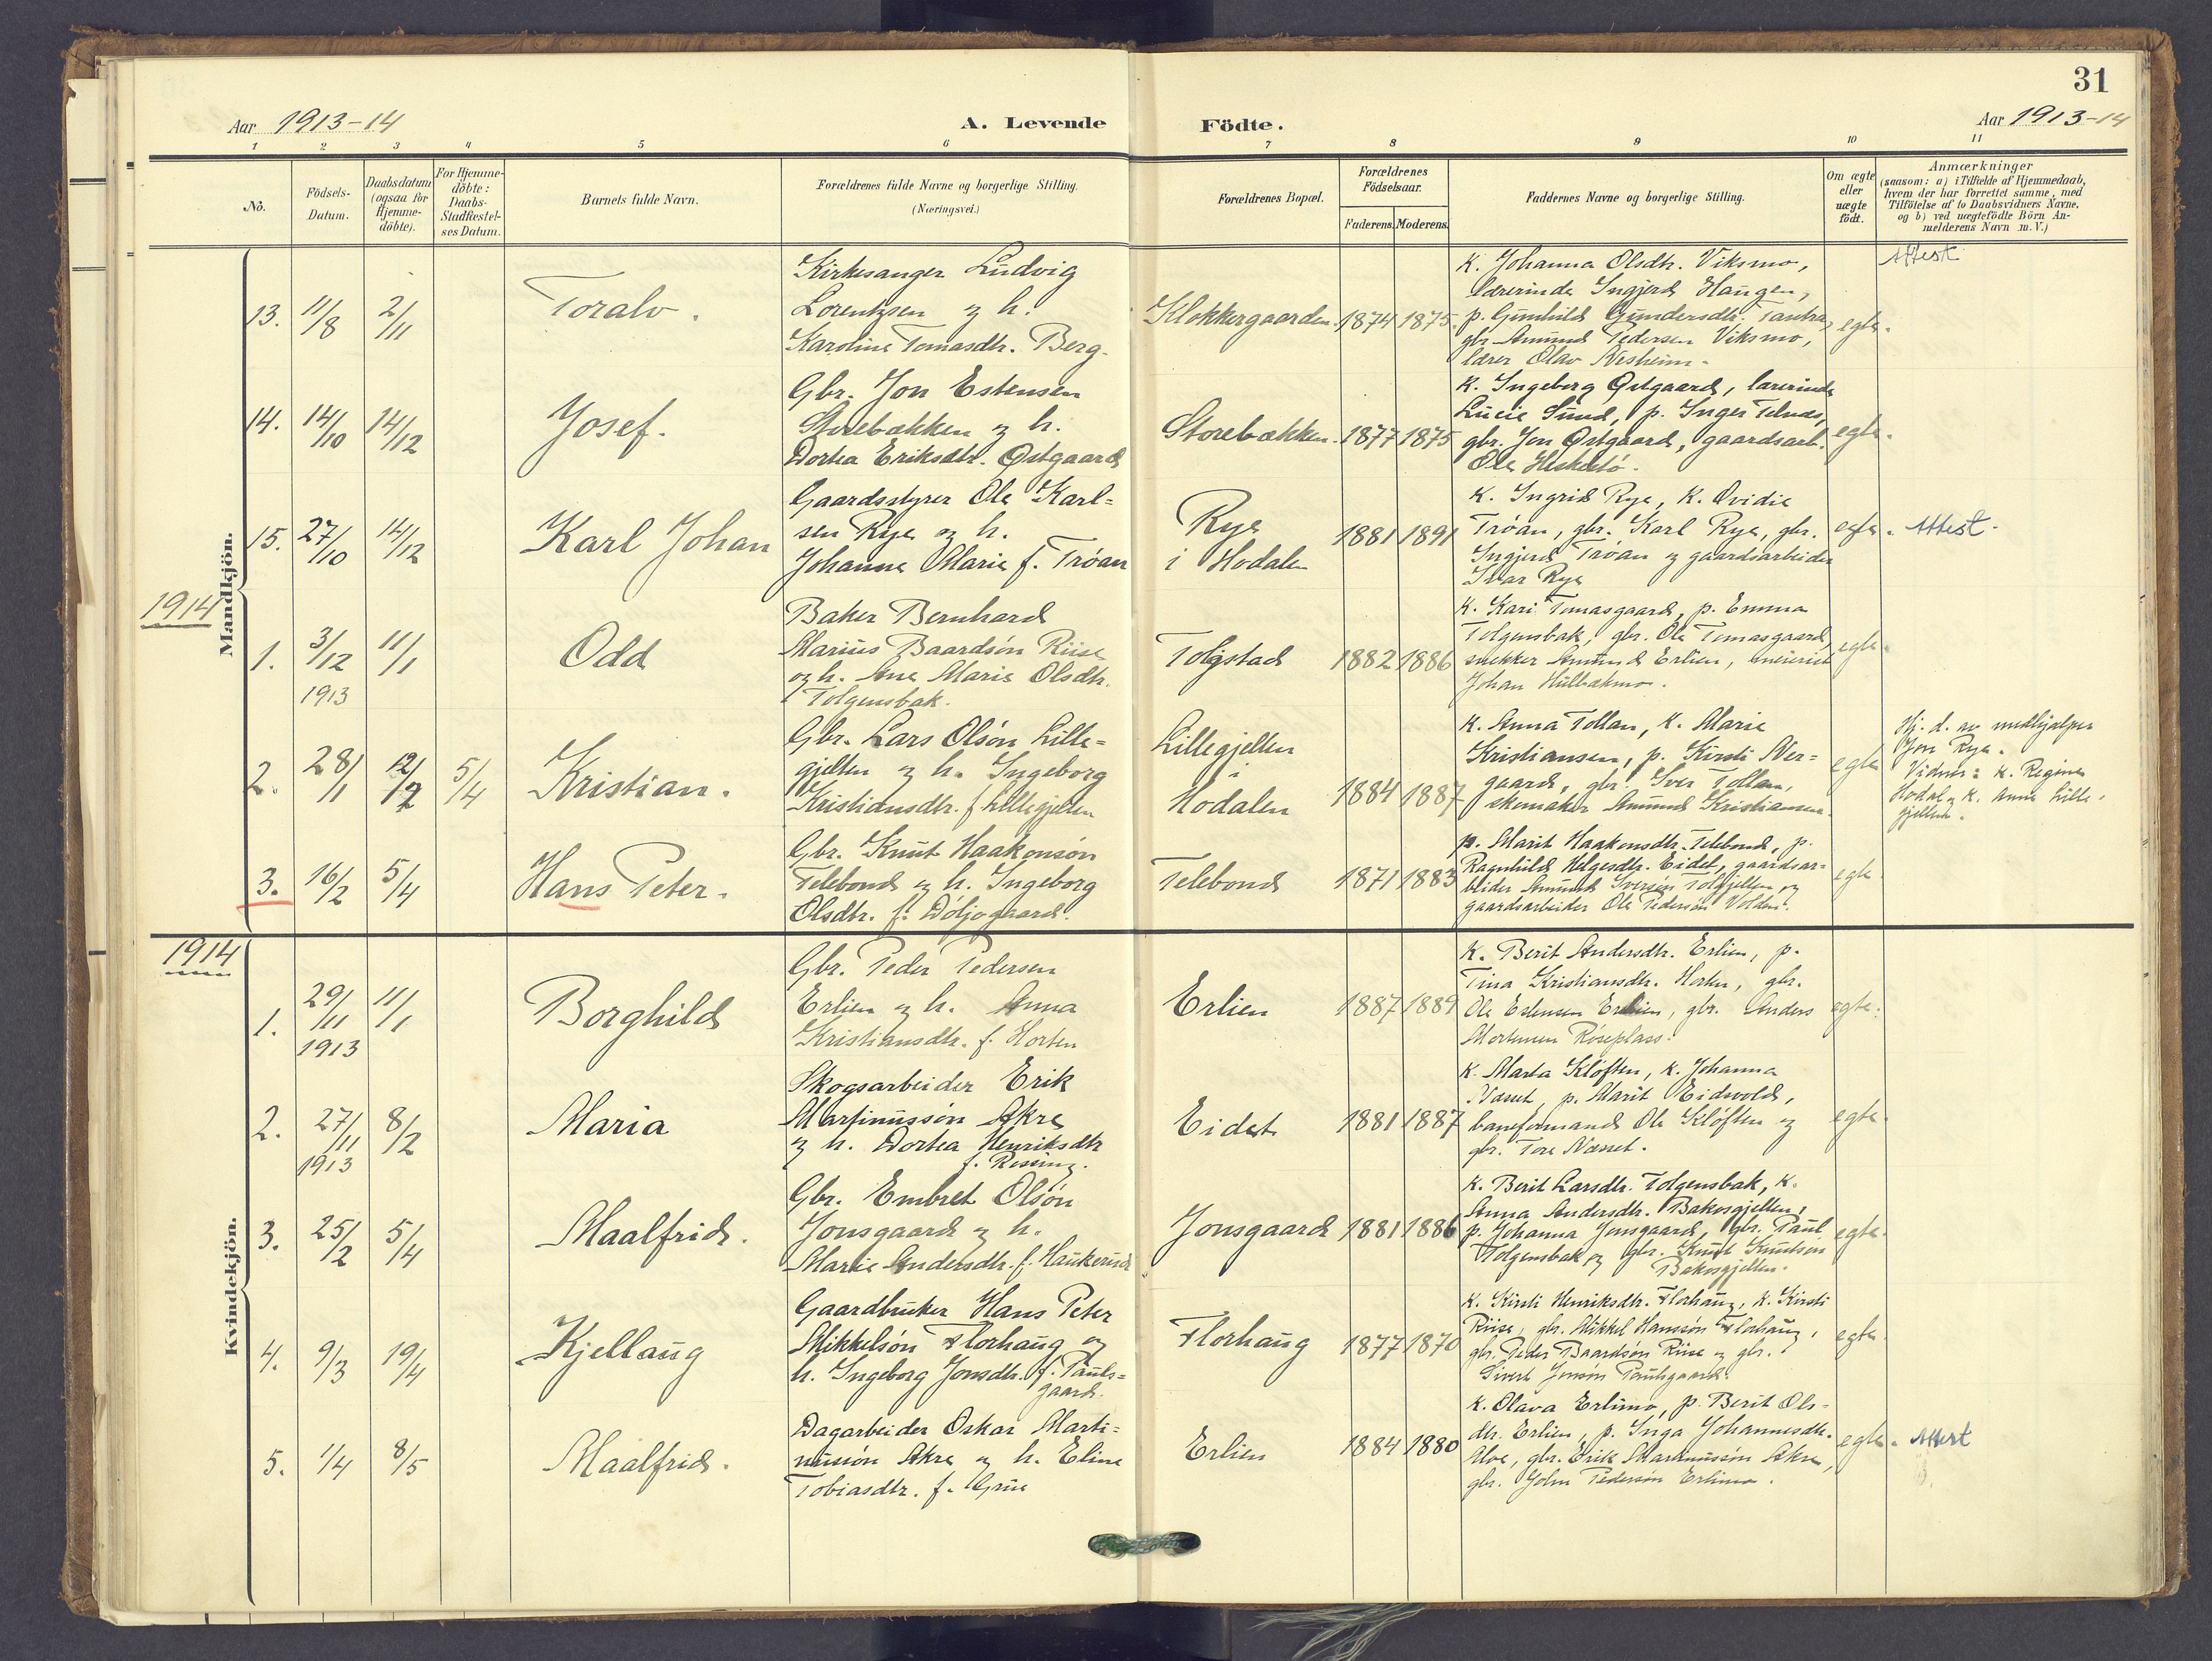 31
Aar 1913-14
A. Levende
Födte.
Aar 1913-14
1 2 3 4 5 6 7 8 9 10 11
No.
Födsels-
Datum.
Daabsdatum
(ogsaa for
Hjemme-
döbte).
For Hjemme-
döbte:
Daabs-
Stadfæstel-
ses Datum.
Barnets fulde Navn.
Forældrenes fulde Navne og borgerlige Stilling.
(Næringsvei.)
Forældrenes Bopæl.
Forældrenes
Födselsaar.
Faderens. Moderens.
Faddernes Navne og borgerlige Stilling.
Om ægte
eller
uægte
födt.
Anmærkninger
(saasom: a) i Tilfælde af Hjemmedaab,
hvem der har forrettet samme, med
Tilföielse af to Daabsvidners Navne,
og b) ved uægtefödte Börn An-
melderens Navn m. V.)
Mandkjön.
13. 11/8 2/11
Toralv.
Kirkesanger Ludvig
Lorentzsen og h.
Karoline Tomasdtr. Berg.
Klokkergaarden. 1874 1875.
K. Johanna Olsdtr. Viksmo,
lærerinde Ingjerd Haugen,
p. Gunhild Gundersdtr.
gbr. Amund Pedersen Viksmo,
lærer Olav Nesheim.
egte.
Attest
14. 14/10 14/12
Josef.
Gbr. Jon Estensen
Storebækken og h.
Dortea Eriksdtr. Østgaard
Storebækken. 1877 1875
K. Ingeborg Østgaard, lærerinde
Lucie Sund, p. Inger Telnæs,
gbr. Jon Østgaard, gaardsarb.
Ole
egte.
15. 27/10 14/12
Karl Johan
Gaardsstyrer Ole Karl=
sen Rye og h.
Johanne Marie f. Tröan
Rye
i Hodalen
1881 1891
K. Ingrid Rye, K. Ovidie
Tröan, gbr. Karl Rye, gbr.
Ingjerd Tröan og gaardsarbeider
Ivar Rye
egte.
Attest.
1914
1. 3/12 1913 11/1
Odd
Baker Bernhard
Marius Baardsön Riise
og h. Ane Marie Olsdtr.
Tolgensbak.
Tolgstad 1882 1886
K. Kari Tomasgaard, p. Emma
Tolgensbak, gbr. Ole Tomasgaard,
snekker Amund Erlien, meieriet
Johan Hulbækmo.
egte.
2. 28/1 12/2 5/4
Kristian.
Gbr. Lars Olsön Lille=
gjelten og h. Ingeborg
Kristiansdtr. f. Lillegjelten
Lillegjelten
i
Hodalen
1884 1887
K. Anna Tollan, K. Marie
Kristiansen, p. Kirsti Ner=
gaard, gbr. Iver Tollan,
skomaker Amund Kristiansen.
egte
Hj. d. av medhjælper
Jon Rye.
Vidner: K. Regine
Hodal og K. Anne Lille-
gjelten.
3. 16/2 5/4
Hans Peter.
Gbr. Knut Haakonsön
Telebond og h. Ingeborg
Olsdtr. f. Döljogaard.
Telebond 1871 1883
p. Marit Haakonsdtr. Telebond, p.
Ragnhild Helgesdtr. Eidet, gaardsar=
beider Amund Iversen Tolgjelten og
gaardsarbeider Ole Pedersön Volden.
egte.
Kvindekjön.
1914
1. 29/11 1913 11/1
Borghild
Gbr. Peder Pedersen
Erlien og h. Anna
Kristiansdtr. f. Horten
Erlien 1887 1889
K. Berit Andersdtr. Erlien, p.
Tina Kristiansdtr. Horten, gbr.
Ole Estensen Erlien, gbr. Anders
Mortensen Röseplass.
egte.
2. 27/11 1913 8/2
Maria
Skogsarbeider Erik
Martinussön Akre
og h. Dortea Henriksdtr
f. Rosing.
Eidet 1881 1887
K. Marta Klöften, K. Johanna
Næsset, p. Marit Eidsvold,
baneformand Ole Klöften og
gbr. Tore Næsset.
egte.
3. 25/2 5/4
Maalfrid.
Gbr. Embret Olsön
Jonsgaard og h.
Marie Andersdtr. f. Haukerud
Jonsgaard 1881 1886
K. Berit Larsdtr. Tolgensbak, K.
Anna Andersdtr. Bakosgjelten,
p. Johanna Jonsgaard, gbr. Paul
Tolgensbak og gbr. Knut Knutson
Bakosgjelten.
egte.
4. 9/3 19/4
Kjellaug
Gaardbruker Hans Peter
Mikkelsön Florhaug og
h. Ingeborg Jonsdtr. f. Pauls=
gaard.
Florhaug 1877 1870
K. Kirsti Henriksdtr. Florhaug, K. Kirsti
Riise, gbr. Mikkel Hanssön Florhaug,
gbr. Peder Baardsön Riise og gbr.
Sivert Jonsön Paulsgaard.
egte.
5. 1/4 8/5
Maalfrid.
Dagarbeider Oskar Marti=
nusön Akre og h. Eline
Tobiasdtr. f. Grue
Erlien 1884 1880
K. Olava Erlimo, p. Berit Ols-
dtr. Erlien, p. Inga Johannesdtr.
Moe, gbr. Erik Martinussön Akre,
gbr. John Pedersön Erlimo.
egte.
Attest